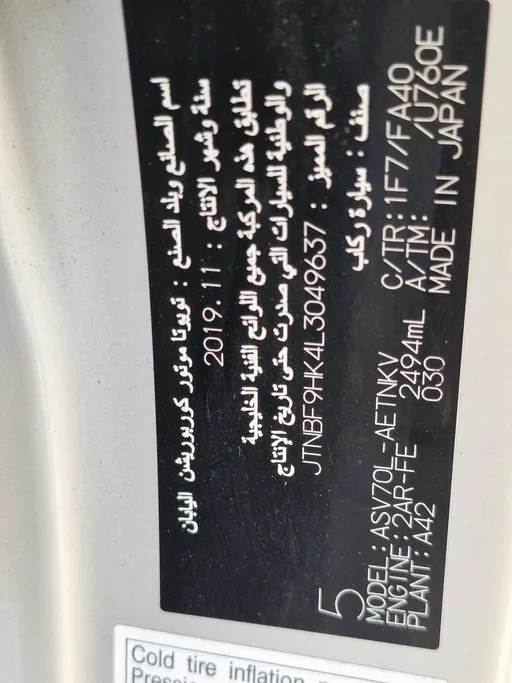 اسم الصانع وبلد الصنع : تويوتا موتور كوربوريشن اليابان
سنة وشهر الانتاج : 2019.11
تطابق هذه المركبة جميع اللوائح الفنية الخليجية
والوطنية للسيارات التي صدرت حتى تاريخ الإنتاج
الرقم المميز : JTNBF9HK4L3049637
صنف : سيارة ركاب
5
MODEL:ASV70L-AETNKV
ENGINE:2AR-FE 2494mL C/TR:1F7/FA40
PLANT:A42 030 A/TM: /U760E
MADE IN JAPAN
Cold tire inflation